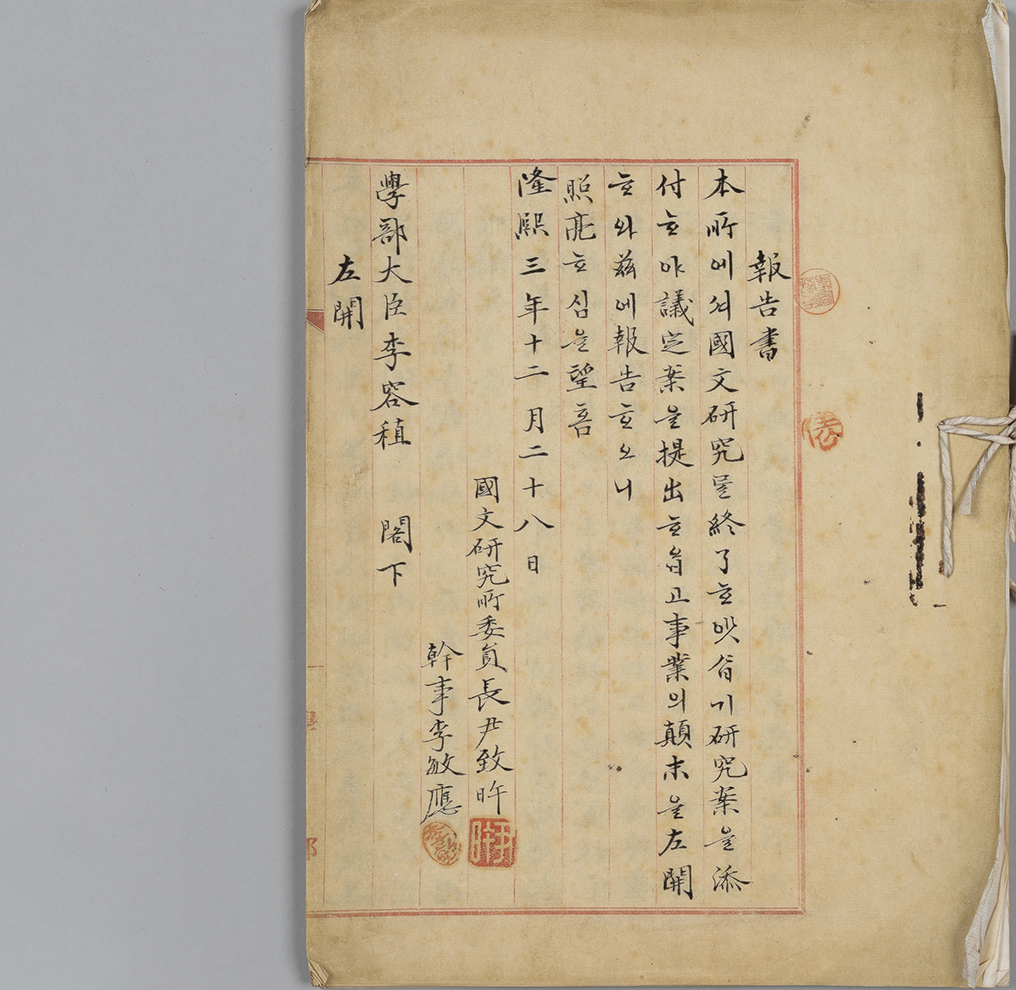 報告書
本所에셔國文硏究를終了ᄒᆞ얏ᄉᆞᆸ기硏究案을添
付ᄒᆞ야議定案을提出ᄒᆞᄋᆞᆸ고事業의顚末을左開
ᄒᆞ와玆에報告ᄒᆞ오니
照亮ᄒᆞ심을望홈
隆熙三年十二月二十八日
國文硏究所委員長尹致旿
幹事李敏應
學部大臣李容稙 閣下
左開